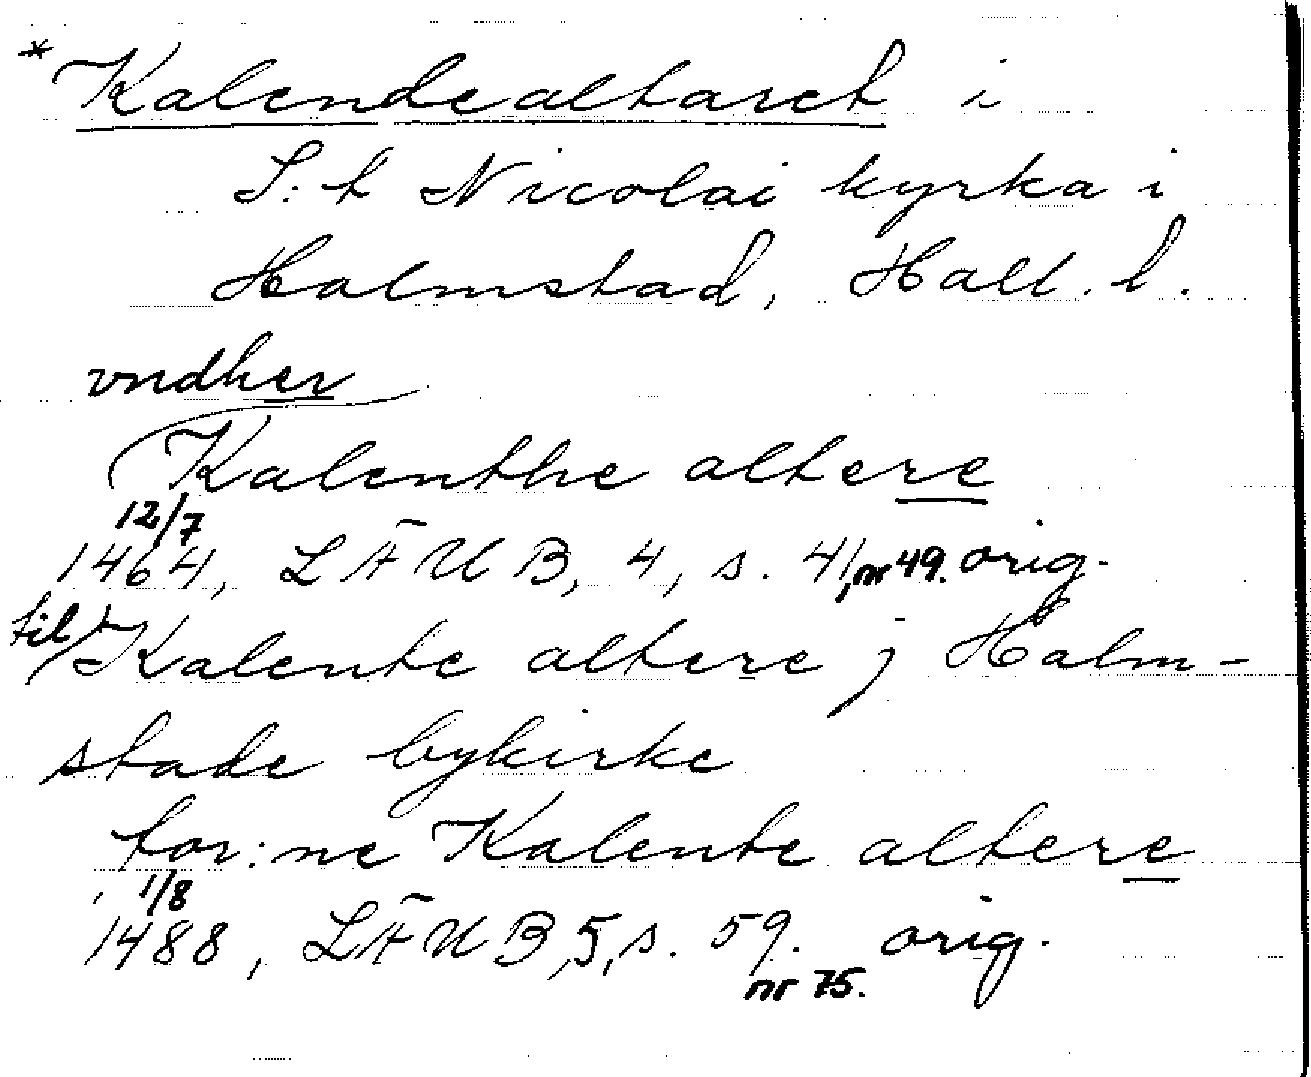 * Kalendealtaret i
S:t Nicolai kyrka i
Halmstad, Hall. l.
vndher
Kalenthe altere
12/7
1464, LÄUB, 4, s. 41, nr 49. orig.
til Kalente altere j Halm-
stade bykirke
for:ne Kalente altere
1/8
1488, LÄUB, 5, s. 59. orig.
nr 75.